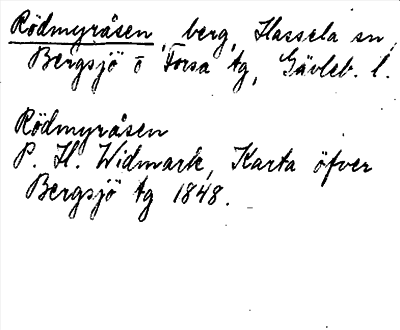 Rödmyråsen, berg, Hassela sn,
Bergsjö o Forsa tg, Gävleb. l.
Rödmyråsen
P. H. Widmark, Karta öfver
Bergsjö tg 1848.